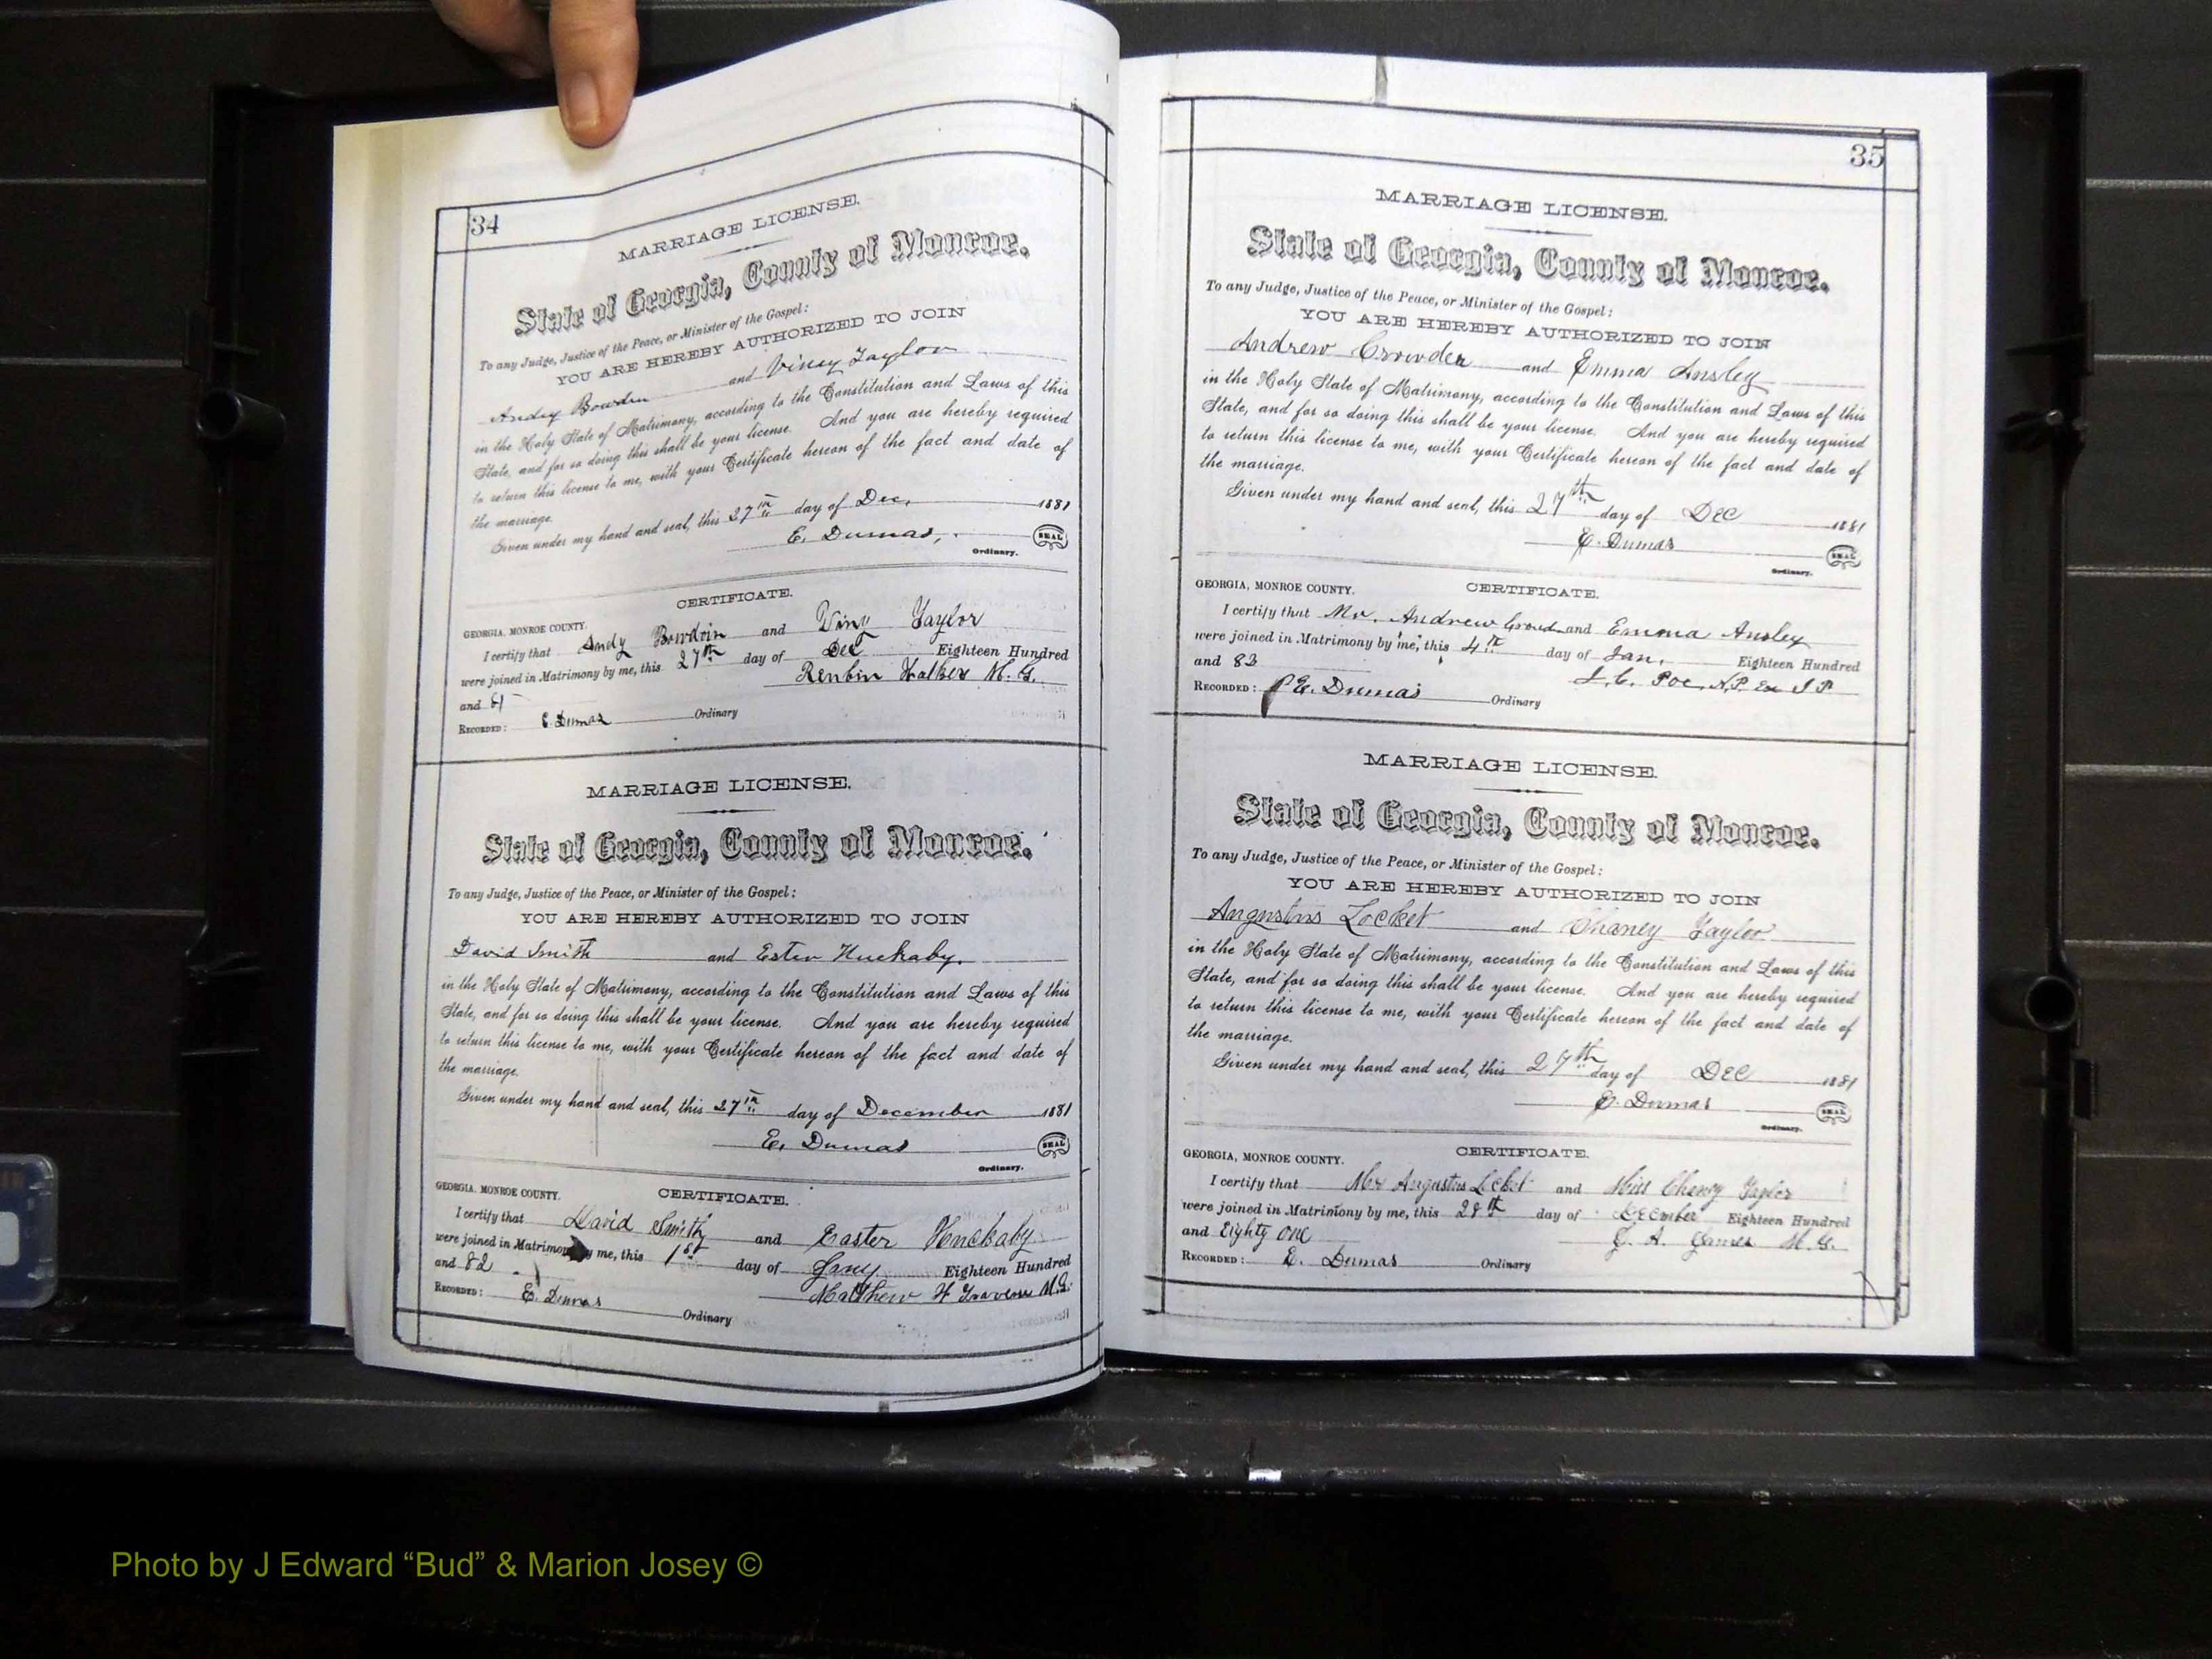 34
MARRIAGE LICENSE.
State of Georgia, County of Monroe.
To any Judge, Justice of the Peace, or Minister of the Gospel:
YOU ARE HEREBY AUTHORIZED TO JOIN
Andy Bowden and Viney Taylor
in the Holy State of Matrimony, according to the Constitution and Laws of this
State, and for so doing this shall be your license. And you are hereby required
to return this license to me, with your Certificate hereon of the fact and date of
the marriage.
Given under my hand and seal, this 27th day of Dec, 1881
E. Dumas, SEAL
Ordinary.
CERTIFICATE.
GEORGIA, MONROE COUNTY.
I certify that Andy Bowdoin and Viny Taylor
were joined in Matrimony by me, this 27th day of Dec Eighteen Hundred
and 81 Reubin Walker M. G.
RECORDED: E. Dumas Ordinary
MARRIAGE LICENSE.
State of Georgia, County of Monroe.
To any Judge, Justice of the Peace, or Minister of the Gospel:
YOU ARE HEREBY AUTHORIZED TO JOIN
David Smith and Ester Huckaby.
in the Holy State of Matrimony, according to the Constitution and Laws of this
State, and for so doing this shall be your license. And you are hereby required
to return this license to me, with your Certificate hereon of the fact and date of
the marriage.
Given under my hand and seal, this 27th day of December 1881
E. Dumas SEAL
Ordinary.
GEORGIA, MONROE COUNTY. CERTIFICATE.
I certify that David Smith and Easter Huckaby
were joined in Matrimony by me, this 1st day of Jany Eighteen Hundred
and 82 Matthew H M.G.
RECORDED: E. Dumas Ordinary
35
MARRIAGE LICENSE.
State of Georgia, County of Monroe.
To any Judge, Justice of the Peace, or Minister of the Gospel:
YOU ARE HEREBY AUTHORIZED TO JOIN
Andrew Crowder and Emma Ansley
in the Holy State of Matrimony, according to the Constitution and Laws of this
State, and for so doing this shall be your license. And you are hereby required
to return this license to me, with your Certificate hereon of the fact and date of
the marriage.
Given under my hand and seal, this 27th day of Dec 1881
E. Dumas SEAL
Ordinary.
GEORGIA, MONROE COUNTY. CERTIFICATE.
I certify that Mr. Andrew and Emma Ansley
were joined in Matrimony by me, this 4th day of Jan, Eighteen Hundred
and 82 Poe, N.P. Ex J P
RECORDED: E. Dumas Ordinary
MARRIAGE LICENSE.
State of Georgia, County of Monroe.
To any Judge, Justice of the Peace, or Minister of the Gospel:
YOU ARE HEREBY AUTHORIZED TO JOIN
Augustus Locket and Chaney Taylor
in the Holy State of Matrimony, according to the Constitution and Laws of this
State, and for so doing this shall be your license. And you are hereby required
to return this license to me, with your Certificate hereon of the fact and date of
the marriage.
Given under my hand and seal, this 27th day of DEC 1881
E. Dumas SEAL
Ordinary.
GEORGIA, MONROE COUNTY. CERTIFICATE.
I certify that Mr Augustus Locket and Miss Chaney Taylor
were joined in Matrimony by me, this 28th day of December Eighteen Hundred
and Eighty one A. James M. G.
RECORDED: E. Dumas Ordinary
Photo by J Edward “Bud” & Marion Josey ©